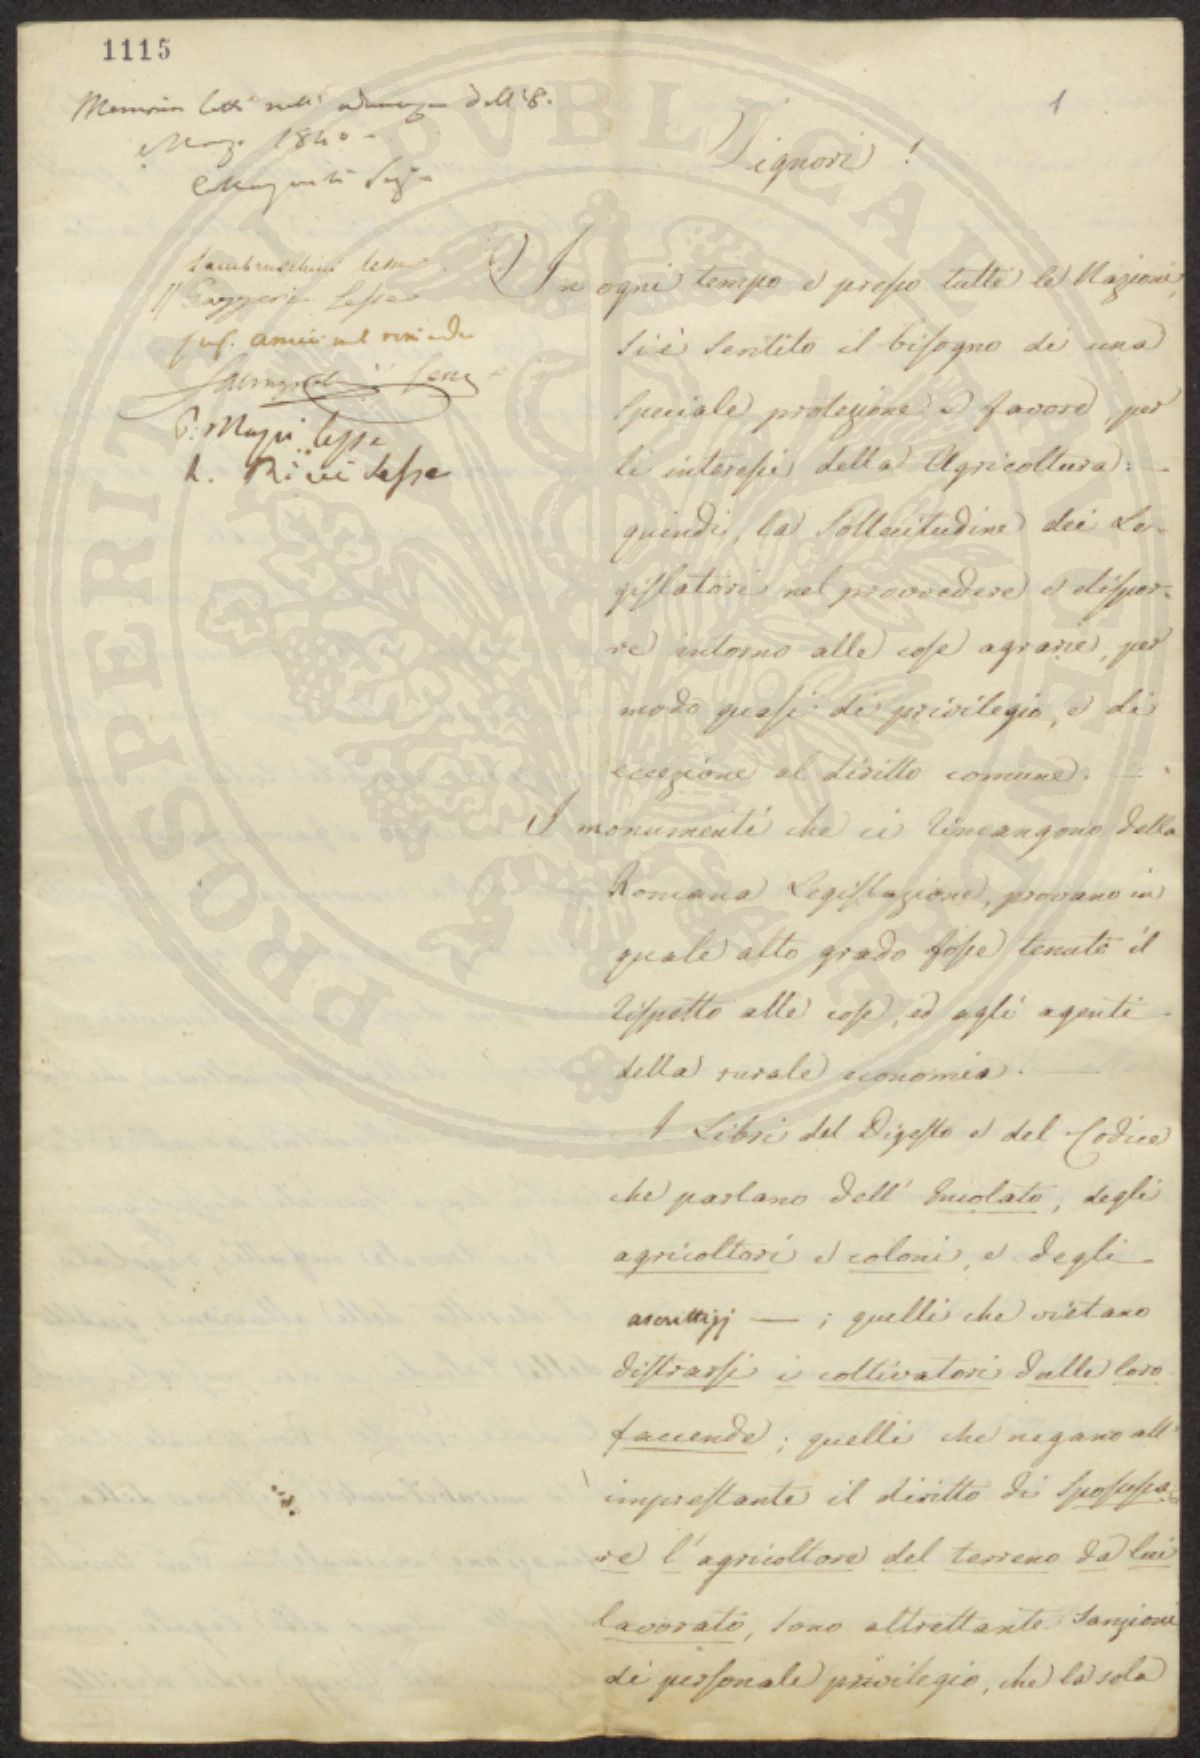 1115
1
Memoria letta nell' adunanza dell' 8.
Marzo 1840
Lambruschini lesse
Prof. Amici
P. Mazzi lesse
R. Ricci lesse
Signori!
In ogni tempo e presso tutte le Nazioni,
si è sentito il bisogno di una
speciale protezione e favore, per
li interessi della Agricoltura: —
quindi, la sollecitudine dei Le-
gislatori nel provvedere e dispor-
re intorno alle cose agrarie, per
modo quasi di privilegio, e di
eccezione al diritto comune. —
I monumenti che ci rimangono della
Romana Legislazione, provano in
quale alto grado fosse tenuto il
rispetto alle cose, ed agli agenti
della rurale economia. —
I Libri del Digesto e del Codice
che parlano dell' Incolato, degli
agricoltori e coloni, e degli
ascrittizj — ; quelli che vietano
distrarsi i coltivatori dalle loro
faccende; quelli che negano all'
imprestante il diritto di spossessa-
re l'agricoltore del terreno da lui
lavorato, sono altrettante sanzioni
di personale privilegio, che la sola
PROSPERITATI PVBLICAE AVGENDAE